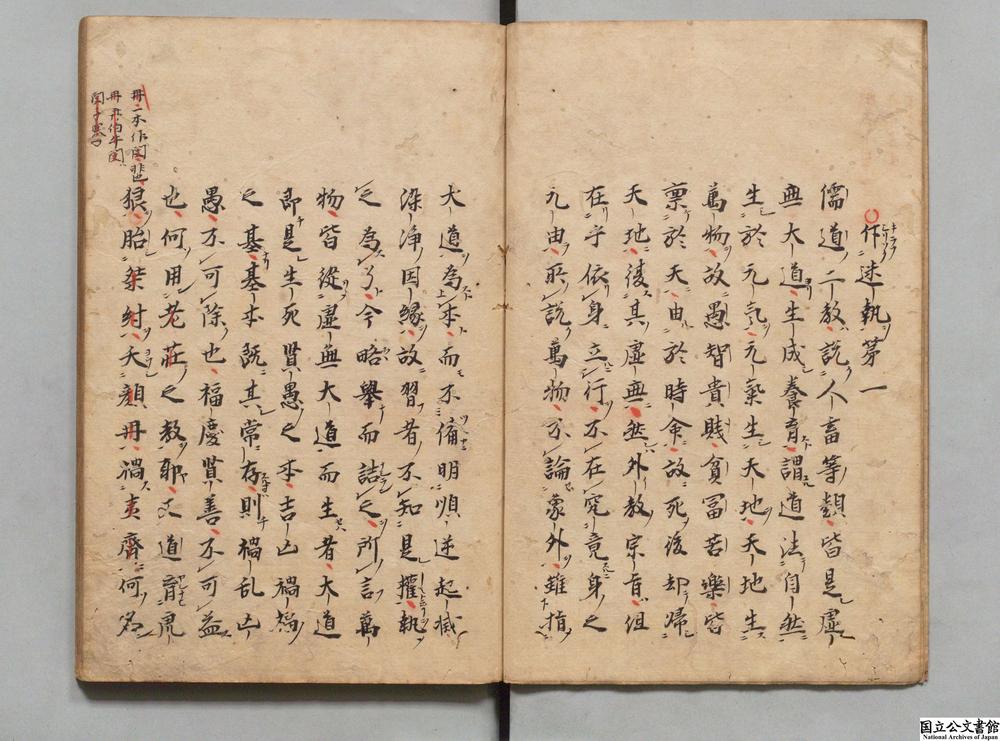 斥迷執第一
儒道二教説人畜等類皆是虚
無大道生成養育謂道法自然
生於元氣元氣生天地天地生
萬物故愚智貴賤貧冨苦樂皆
禀於天由於時命故死後却歸
天地復其虚無然外教宗旨但
在乎依身立行不在究竟身之
元由所説萬物不論象外雖指
大道為本而不備明順逆起滅
染浄因縁故習者不知是權執
之為了今略舉而詰之所言萬
物皆從虚無大道而生者大道
即是生死賢愚之本吉凶禍福
之基基本既其常存則禍乱凶
愚不可除也福慶賢善不可益
也何用老莊之教耶又道育虎
狼胎桀紂夭顔冉禍夷齊何名
冉一本作閔非也
冉冉伯牛閔
閔子騫
国立公文書館
National Archives of Japan